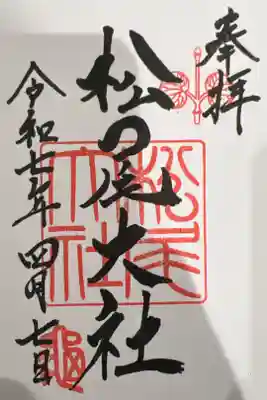 奉拝
松の尾大社
松尾
大社
令和七年四月七日
亀